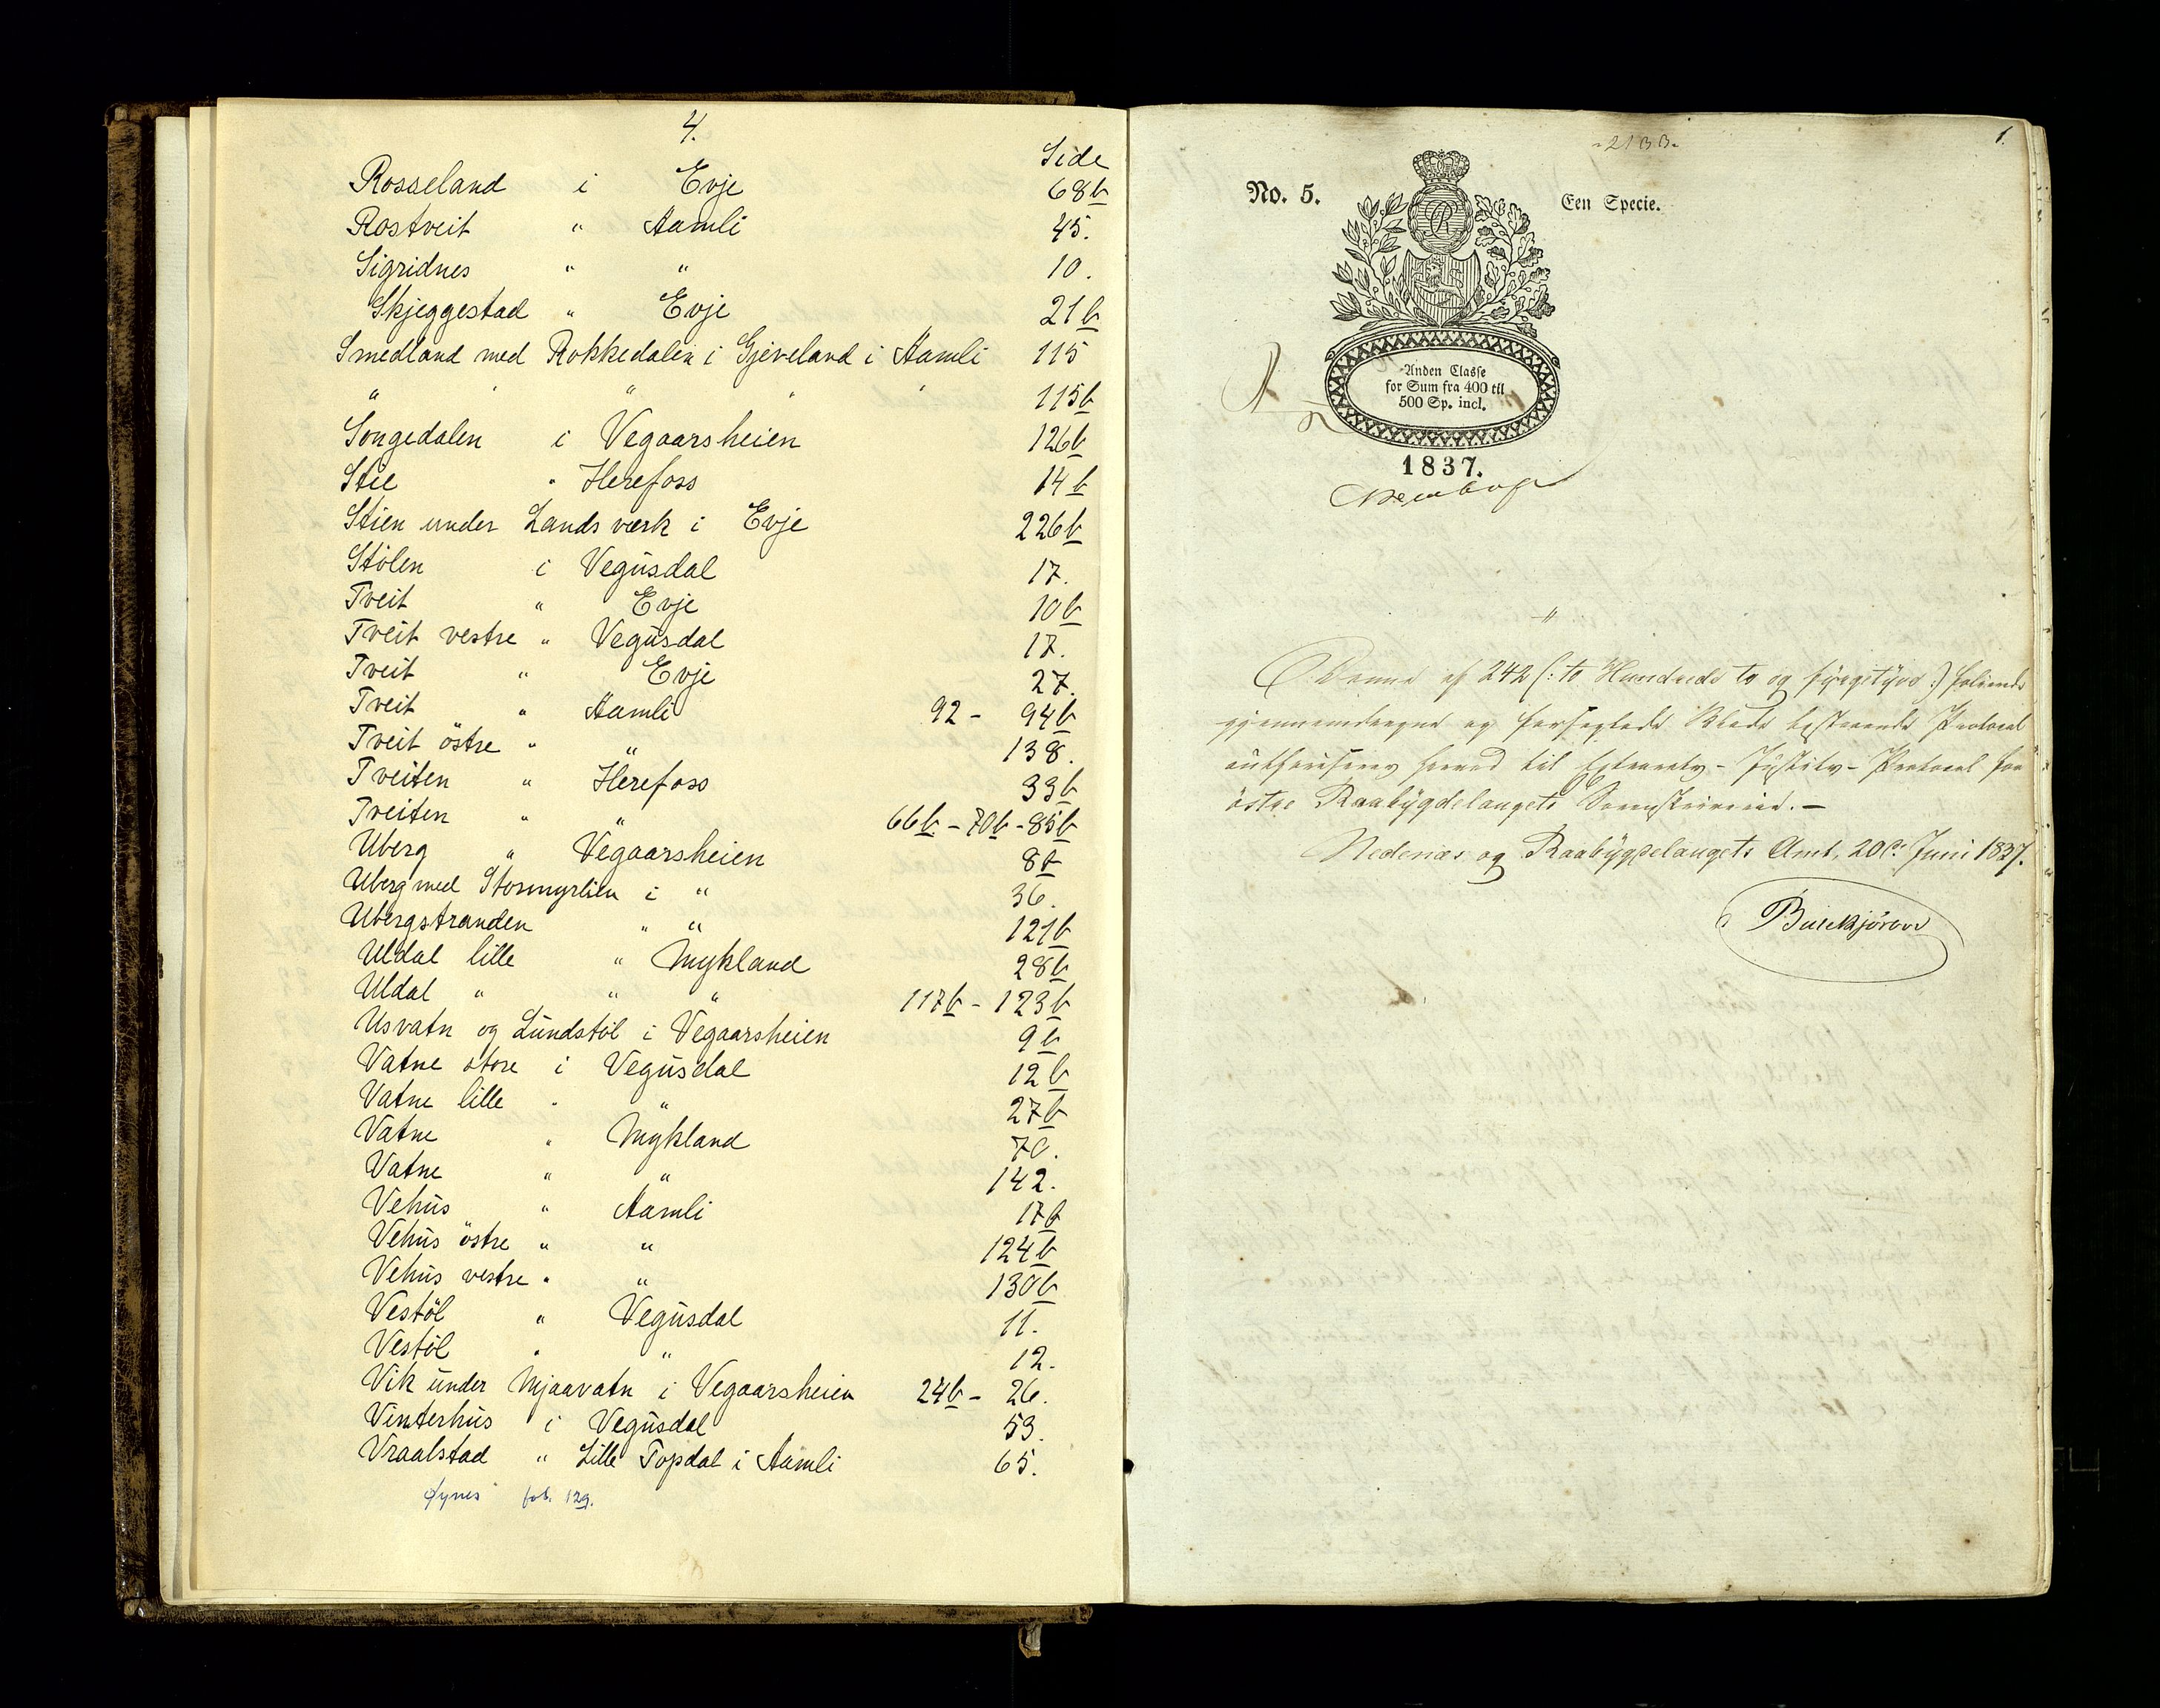 4.
Side
Rosseland i Evje 68b
Rostveit " Aamli 45.
Sigridnes " " 10.
Skjeggestad " Evje 21b
Smedland med Rokkedalen i Gjeveland i Aamli 115
" " " " " 115b
Songedalen i Vegaarsheien 126b
Stie " Herefoss 14b
Stien under Landsværk i Evje 226b
Stölen i Vegusdal 17.
Tveit " Evje 10b
Tveit vestre " Vegusdal 17.
Tveit " Evje 27.
Tveit " Aamli 92 - 94b
Tveit östre " " 138.
Tveiten " Herefoss 33b
Tveiten " " 66b - 70b - 85b
Uberg " Vegaarsheien 8b
Uberg med Stormyrlien i " 36.
Ubergstranden " " 121b
Uldal lille " Mykland 28b
Uldal " " " 117b - 123b
Usvatn og Lundstöl i Vegaarsheien 9b
Vatne store i Vegusdal 12b
Vatne lille " " 27b
Vatne " Mykland 70.
Vatne " " 142.
Vehus " Aamli 17b
Vehus östre " " 124b
Vehus vestre " " 130b
Vestöl " Vegusdal 11.
Vestöl " " 12.
Vik under Mjaavatn i Vegaarsheien 24b - 26.
Vinterhus i Vegusdal 53.
Vraalstad " Lille Topdal i Aamli 65.
Øynes fol. 129.
1.
-2133-
No. 5.
Een Specie.
Anden Classe
for Sum fra 400 til
500 Sp. incl.
1837.
Denne af 242 (: to Hundrede to og fyrgetyve :) folierede
gjennemdragne og forseglede Blade bestaaende Protocol
authoriseres herved til Extrarets-Justits-Protocol for
östre Raabygdelaugets Sorenskriverie. –
Nedenæs og Raabygdelaugets Amt, 20de Juni 1837.